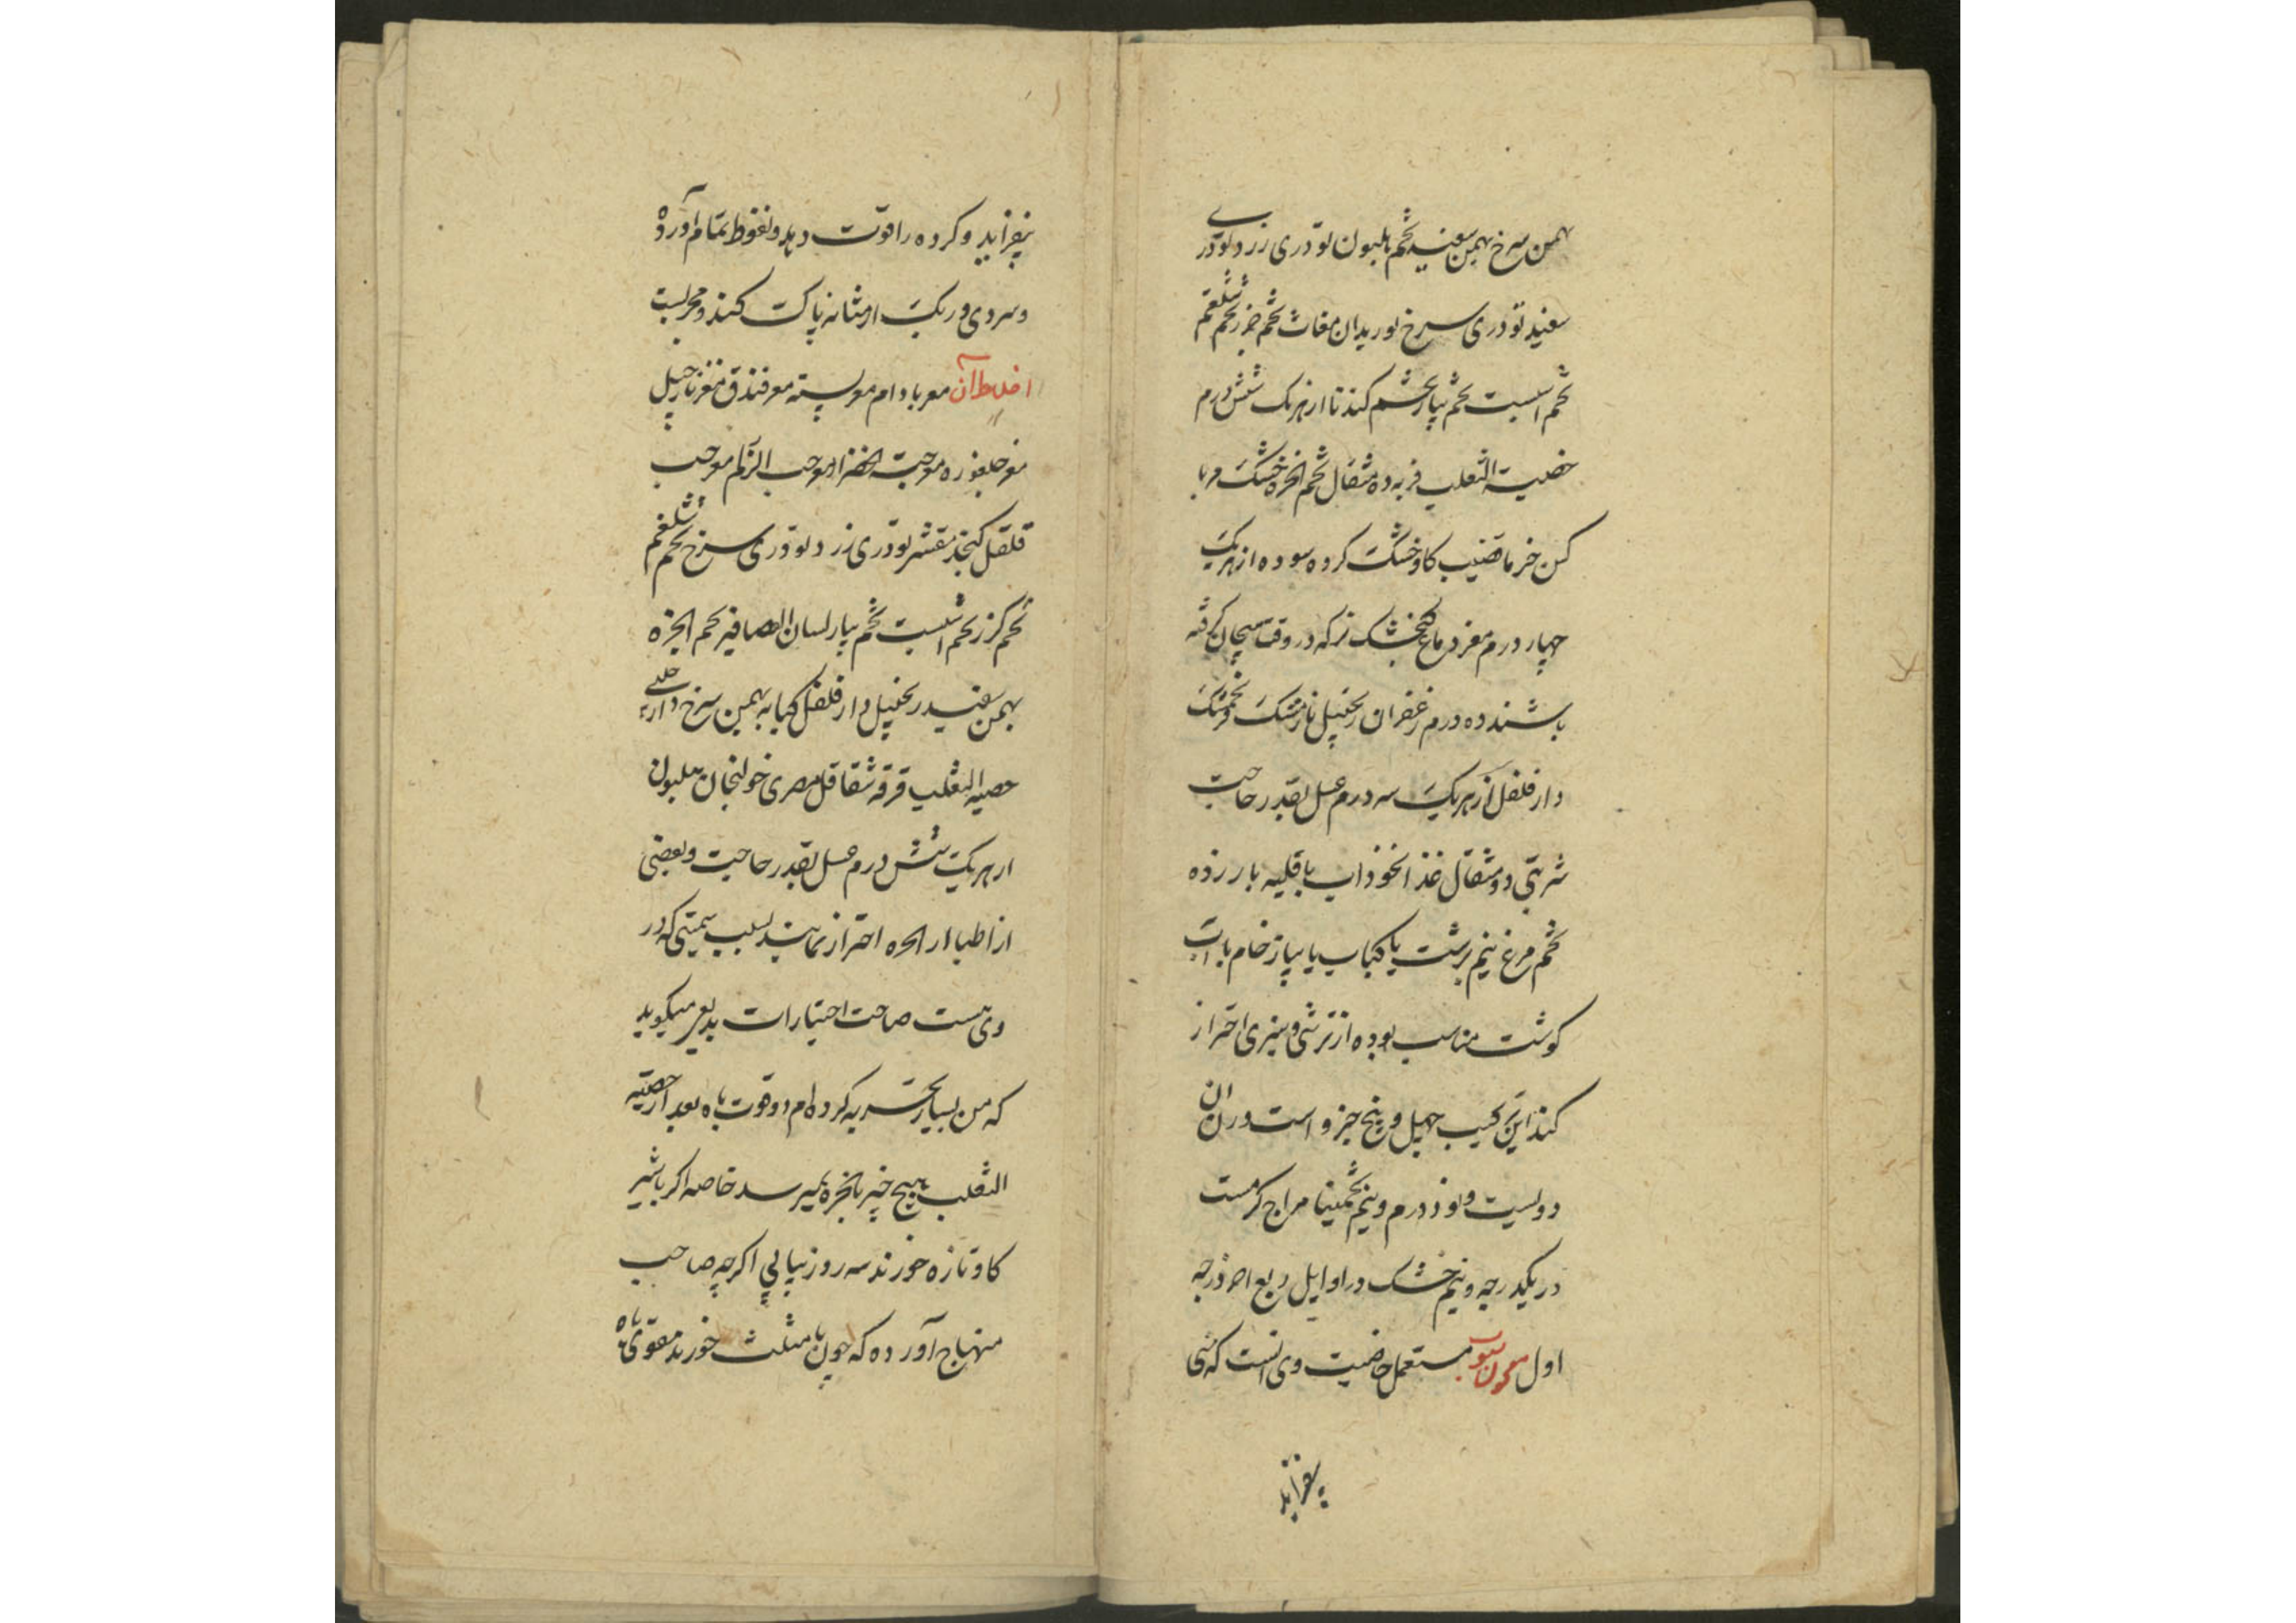 بهمن سرخ بهمن سفید تخم هلیون تودری زرد تودری
سفید تودری سرخ بوزیدان مغاث تخم جزر تخم شلغم
تخم اسپست تخم پیاز تخم کندنا از هریک شش درم
خصیة الثعلب فربه ده مثقال تخم انجره خشک مربا
کن خرما قضیب کاو خشک کرده سوده از هریک
چهار درم مغز دماغ کنجشک نر که در وقت هیجان کرفته
باشند ده درم زعفران زنجبیل نارمشک فرنجمشک
دارفلفل از هریک سه درم عسل بقدر حاجت
شربتی دو مثقال غذا نخوذاب یا قلیه با زرده
تخم مرغ نیم برشت یا کباب یا پیاز خام با آب
کوشت مناسب بوده از ترشی و سبزی احتراز
کند این ترکیب چهل و پنج جزو است در آن
دویست و نوذ درم و نیم تخمینا مزاج کرمست
در یکدرجه و نیم خشک در اوایل ربع اخر درجه
اول معجون لبوب مستعمل خاصیت وی انست که منی
بیفزاید
بیفزاید و کرده را قوت دهد و نغوظ تمام آورد
و سردی و ریک از مثانه پاک کند و مجربست
اخلاط آن مغز بادام مغز پسته مغز فندق مغز نارجیل
مغز جلغوزه مغز حبة الخضرا مغز حب الزلم مغز حب
قلقل کنجد مقشر تودری زرد تودری سرخ تخم شلغم
تخم کزر تخم اسپست تخم پیاز لسان العصافیر تخم انجره
بهمن سفید زنجبیل دارفلفل کبابه بهمن سرخ دارچینی
خصیة الثعلب قرفه شقاقل مصری خولنجان هلیون
از هریک شش درم عسل بقدر حاجت و بعضی
از اطبا از انجره احتراز نمایند بسبب سمیتی که در
وی هست صاحب اختیارات بدیعی میکوید
که من بسیار تجربه کرده ام در قوت باه بعد از خصیة
الثعلب هیچ چیز بانجره نمیرسد خاصه اکر با شیر
کاو تازه خورند سه روز پیاپی اکرچه صاحب
منهاج آورده که چون با مثلث خورند مقوی باه